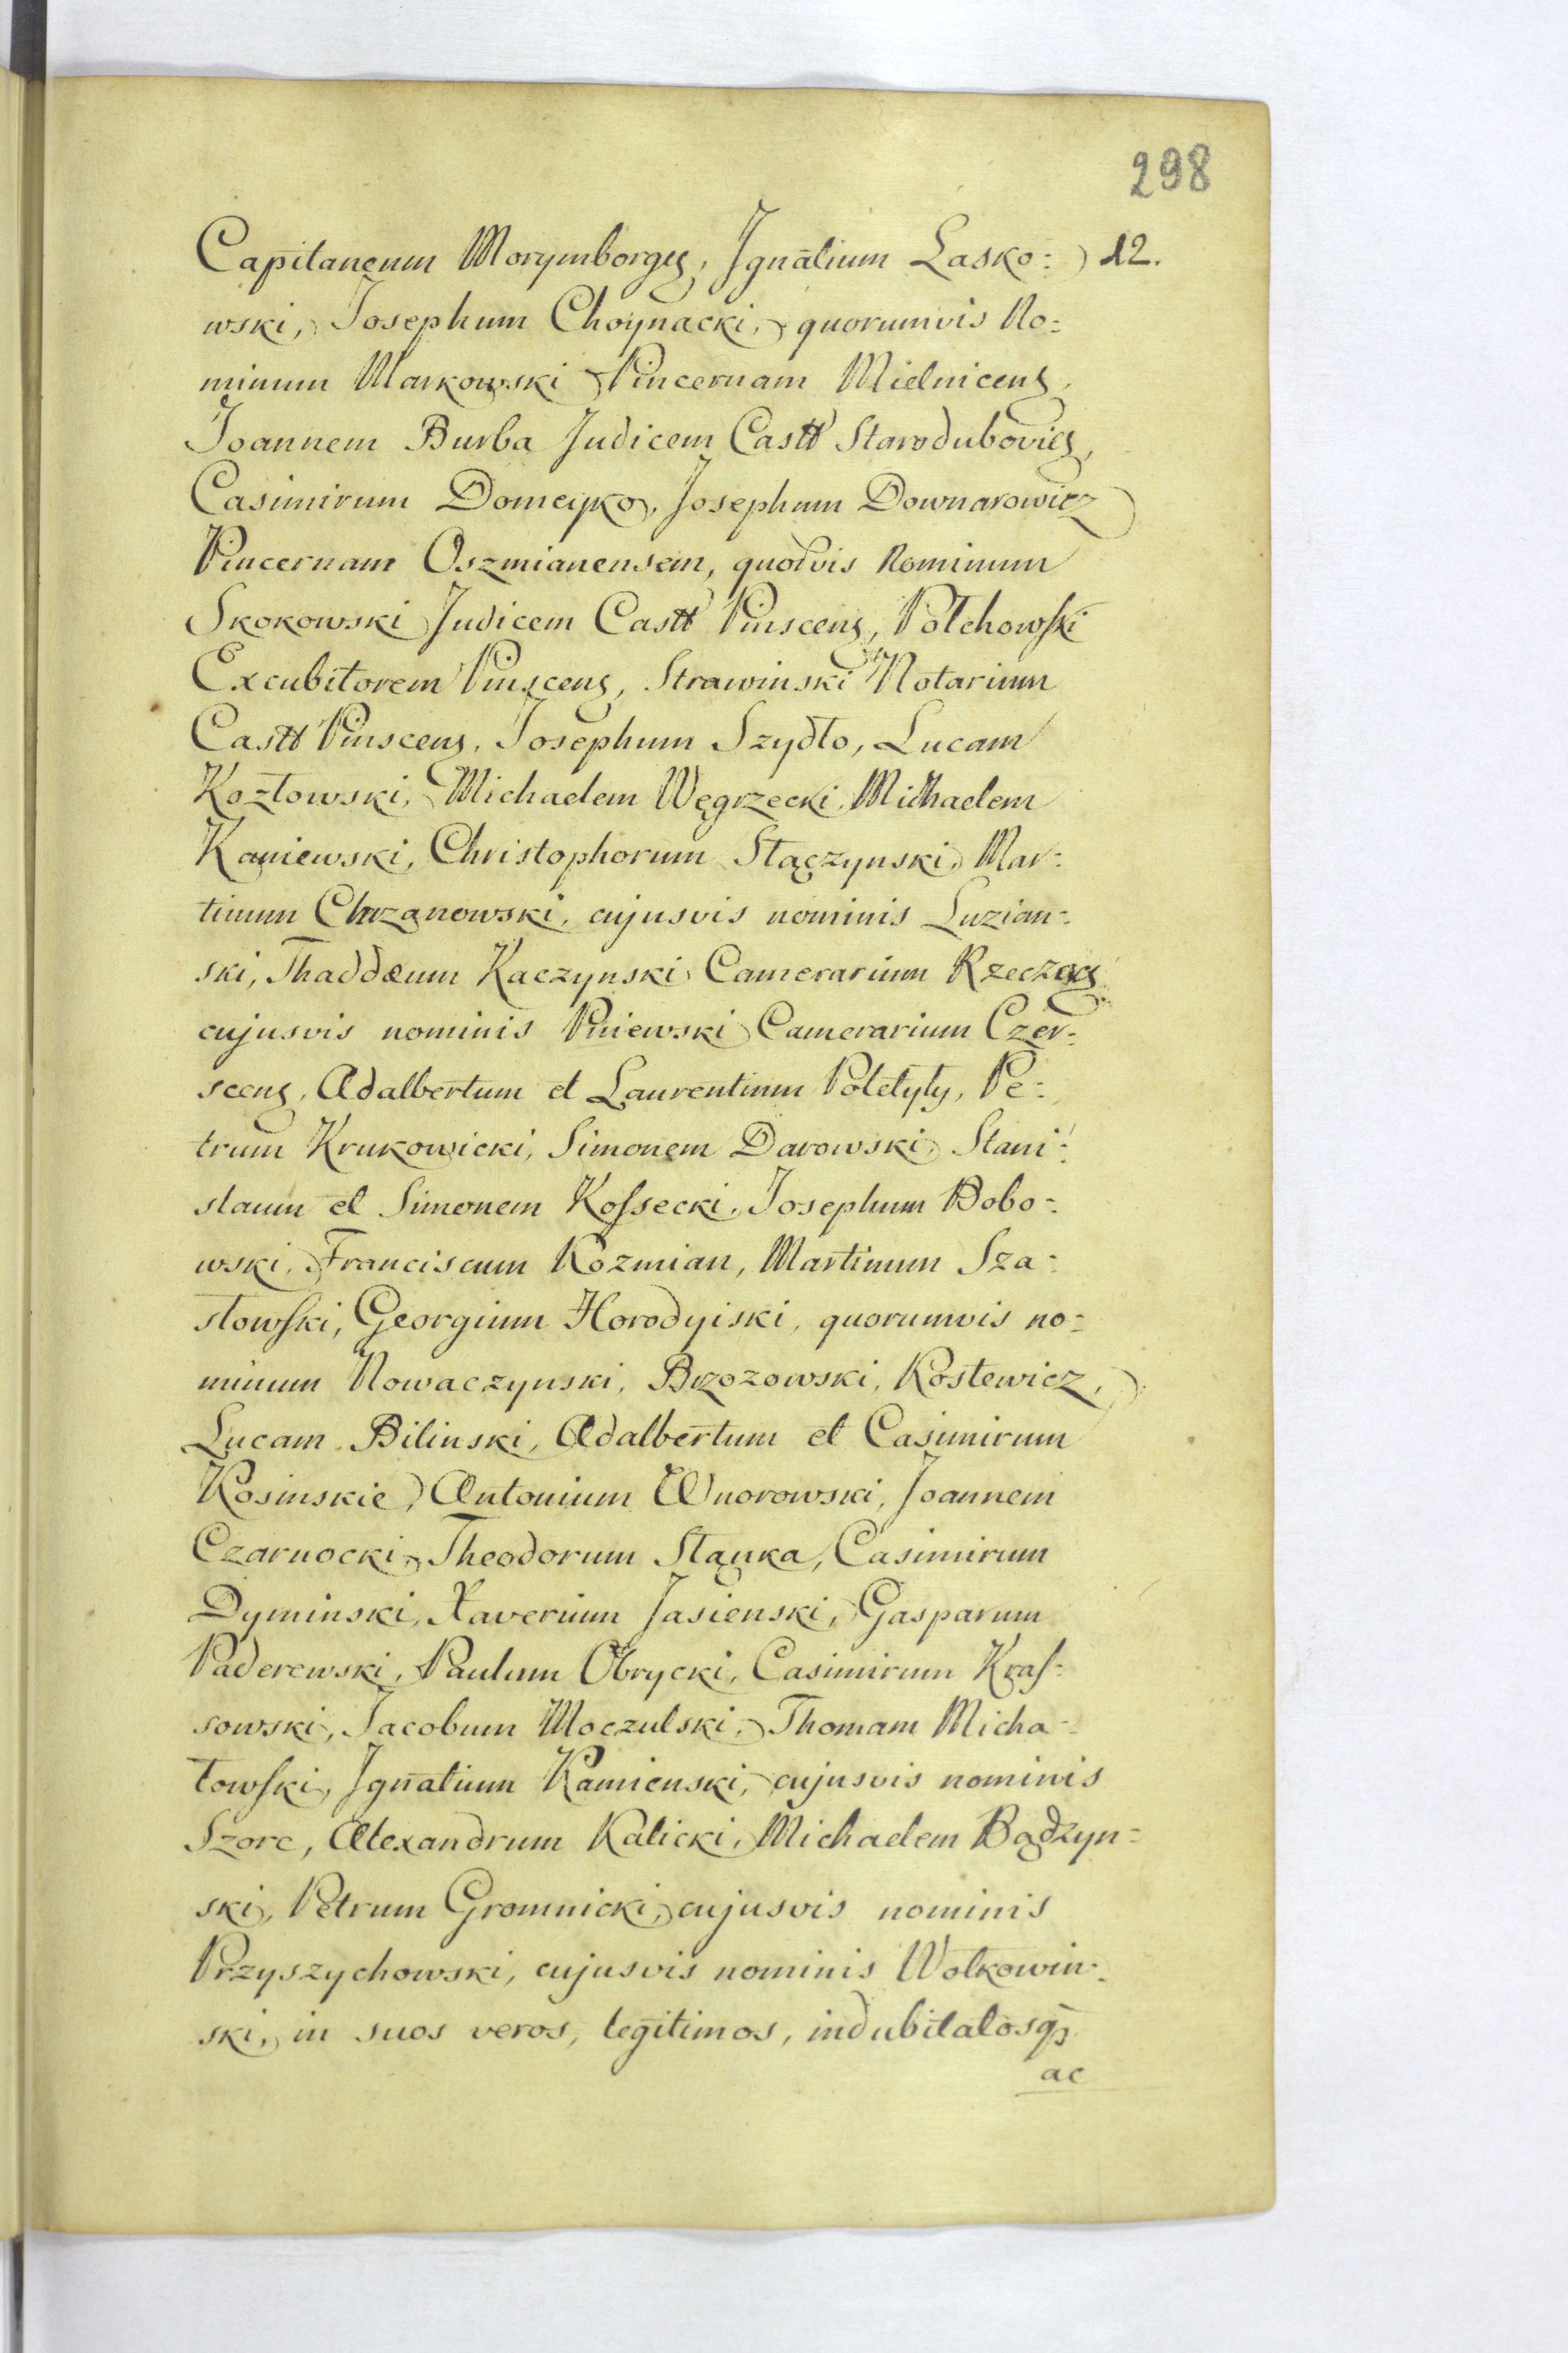 298
Capitaneum Morymborgen, Ignatium Lasko= 12.
wski, Josephum Choynacki, quorumvis No=
minum Markowski Pincernam Mielnicens,
Joannem Burba Judicem Castt Starodubovien,
Casimirum Domeyko, Josephum Downarowicz
Pincernam Oszmianensem, quorvis Nominum
Skokowski Judicem Castt Pinscens, Połchowski
Excubitorem Pinscens, Strawinski Notarium
Castt Pinscens, Josephum Szydło, Lucam
Kozłowski, Michaelem Węgrzecki, Michaelem
Kaniewski, Christophorum Stączynski, Mar=
tinum Chrzanowski, cujusvis nominis Luzian=
ski, Thaddæum Kaczynski Camerarium Rzeczyc
cujusvis nominis Pniewski Camerarium Czer=
scens, Adalbertum et Laurentium Poletyły, Pe=
trum Krukowicki, Simonem Darowski, Stani=
slaum et Simonem Kossecki, Josephum Bobo=
wski, Franciscum Kozmian, Martinum Sza=
słowski, Georgium Horodyiski, quorumvis no=
minum Nowaczynski, Brzozowski, Kostewicz,
Lucam Bilinski, Adalbertum et Casimirum
Kosinskie, Antonium Wnorowski, Joannem
Czarnocki, Theodorum Stąnka, Casimirum
Dyminski, Xaverium Jasienski, Gasparum
Paderewski, Paulum Obrycki, Casimirum Kras=
sowski, Jacobum Moczulski, Thomam Micha=
łowski, Ignatium Kamienski, cujusvis nominis
Szorc, Alexandrum Kalicki, Michaelem Bądzyn=
ski, Petrum Gromnicki, cujusvis nominis
Przyszychowski, cujusvis nominis Wołkowin=
ski, in suos veros, legitimos, indubitatosq3
ac